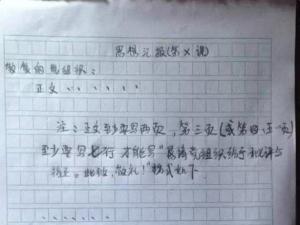 思想汇报(第X课)
敬爱的党组织：
正文......
注：正文至少要写两页，第三页(或第四、五页)
至少要写七行才能写"恳请党组织给予批评与
指正。此致，敬礼！"格式如下
......